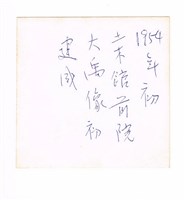 1954年初
土木館前院
大禹像初
建成